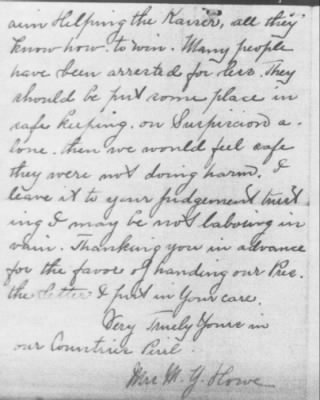 aim Helping the Kaiser, all they
know how to win. Many people
have been arrested for less. They
should be put some place in
safe keeping. on Suspicion a-
lone. then we would feel safe
they were not doing harm. I
leave it to your judgement trust
ing I may be not laboring in
vain. Thanking you in advance
for the favor of handing our Pres.
the letter I put in Your care.
Very Truely Yours in
our Countries Peril.
Mrs M. Y. Howe